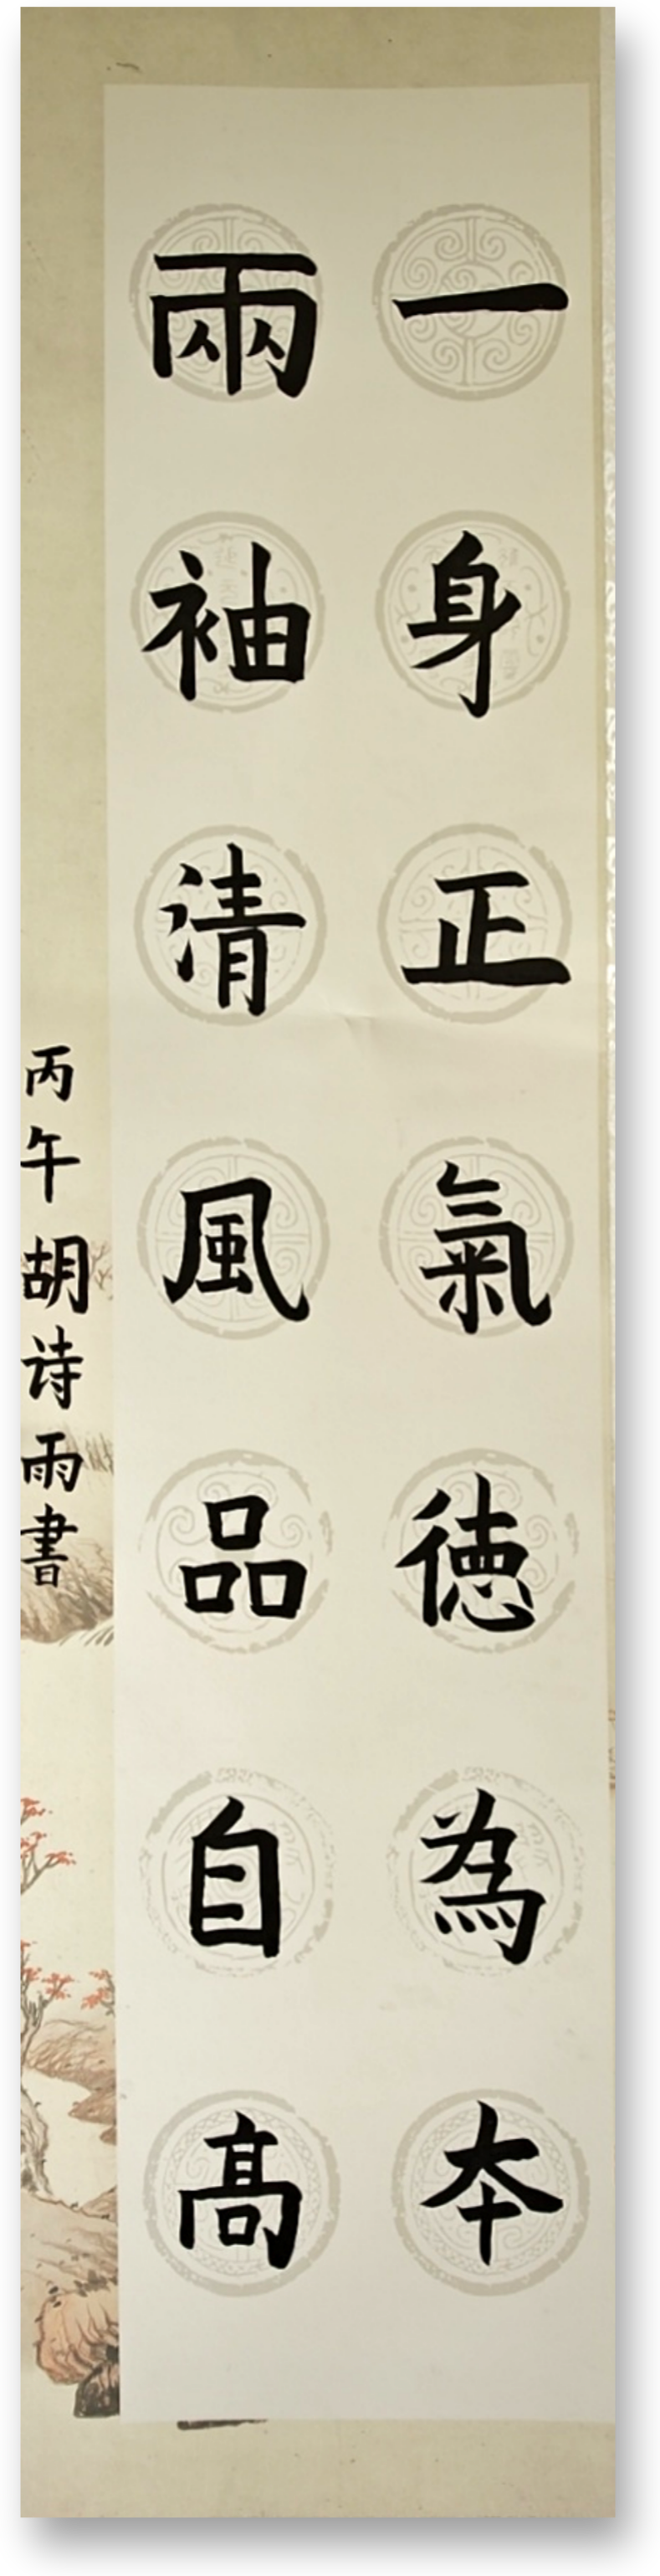 一身正氣徳為本
兩袖清風品自高
丙午胡诗雨書